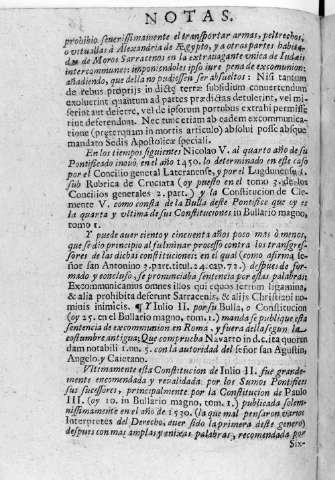 NOTAS.
prohibio seuerissimamente el transportar armas, peltrechos,
o vituallas à Alexandria de Ægypto, y a otras partes habita-
das de Moros Sarracenos en la extrauagante vnica de Iudæis
intercommunes: imponiendoles ipso iure pena de excomunion:
añadiendo, que della no pudiessen ser absueltos: Nisi tantum
de rebus proprijs in dictæ terræ subsidium conuertendum
exoluerint quantum ad partes prædictas detulerint, vel mi-
serint aut deferre, vel de ipsorum portubus extrahi permisse
rint deferendum. Nec tunc etiam ab eadem excommunica-
tione (præterquam in mortis articulo) absolui posse absque
mandato Sedis Apostolicæ speciali.
En los tiempos siguientes Nicolao V. al quarto año de su
Pontificado inouò en el año 1450. lo determinado en este caso
por el Concilio general Lateranense, y por el Lugdunense 1.
sub Rubrica de Cruciata (oy puesto en el tomo 3. de los
Concilios generales 2. part.) y la Constitucion de Cle-
mente V. como consta de la Bulla deste Pontifice que oy es
la quarta y vltima de sus Constituciones in Bullario magno,
tomo 1.
Y puede auer ciento y cincuenta años poco mas ò menos,
que se dio principio al fulminar processo contra los transgres-
sores de las dichas constituciones: en el qual (como afirma el se-
ñor san Antonino 3. part. titul. 24. cap. 72.) despues de for-
mado y concluso, se pronunciaua sentencia por estas palabras:
Excommunicamus omnes illos qui equos ferrum ligamina,
& alia prohibita deferunt Sarracenis, & alijs Christiani no-
minis inimicis. ¶ Y Iulio II. por su Bulla, o Constitucion
(oy 25. en el Bullario magno, tom. 1.) manda se publique esta
sentencia de excommunion en Roma, y fuera della segun la
costumbre antigua: Que comprueba Nauarro in d. c. ita quorun
dam notabili 1. nu. 5. con la autoridad del señor san Agustin,
Angelo, y Caietano.
Vltimamente esta Constitucion de Iulio II. fue grande-
mente encomendada y reualidada por los Sumos Pontifices
sus sucessores, principalmente por la Constitucion de Paulo
III. (oy 10. in Bullario magno, tom. 1.) publicada solem-
nissimamente en el año de 1530. (la que mal pensaron varios
Interpretes del Derecho, auer sido la primera deste genero)
despues con mas amplas y enixas palabras, recomendada por
Six-